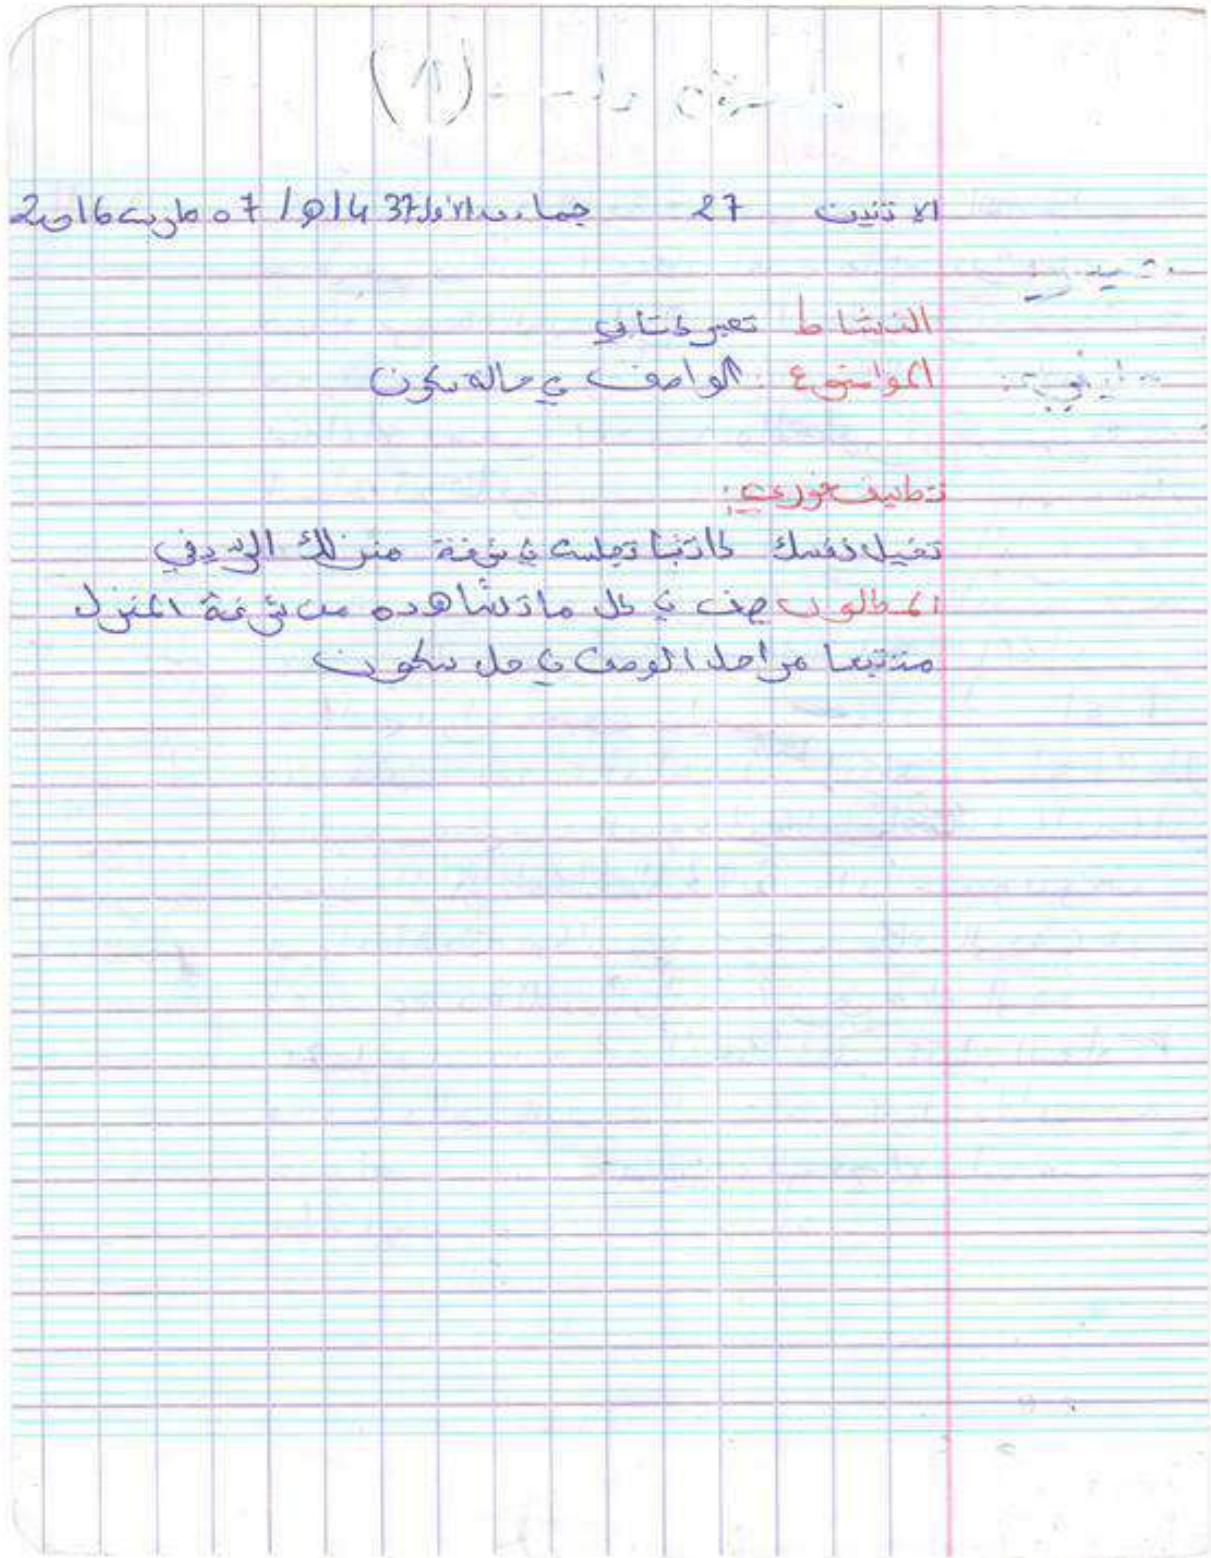 (1)
الاتنين 27 جمادى الأول 1437ه / 07 مارس 2016م
النشاط تعبير كتابي
المواضوع : الواصف في حالة سكون
تطبيق فوري:
تخيل نفسك كاتبا تجلس في شرفة منزلك الريفي
المطلوب صف في كل ماتشاهده من شرفة المنزل
متتبعا مراحل الوصف في حل سكون